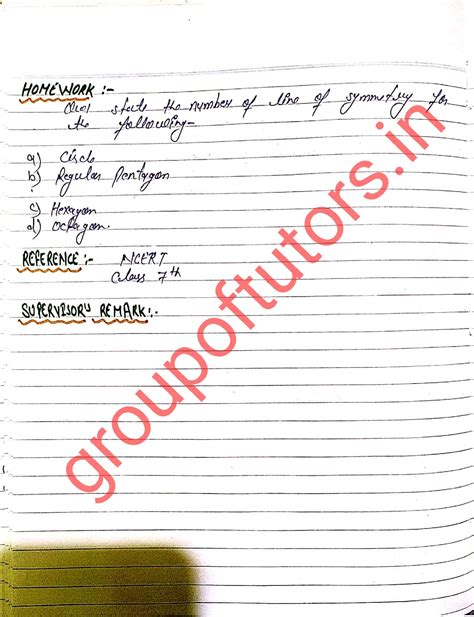 HOMEWORK :-
Que1 state the number of line of symmetry for
the following-
a) Circle
b) Regular Pentagon
c) Hexagon
d) Octagon.
REFERENCE :- NCERT
Class 7th
SUPERVISOR'S REMARK :-
groupoftutors.in